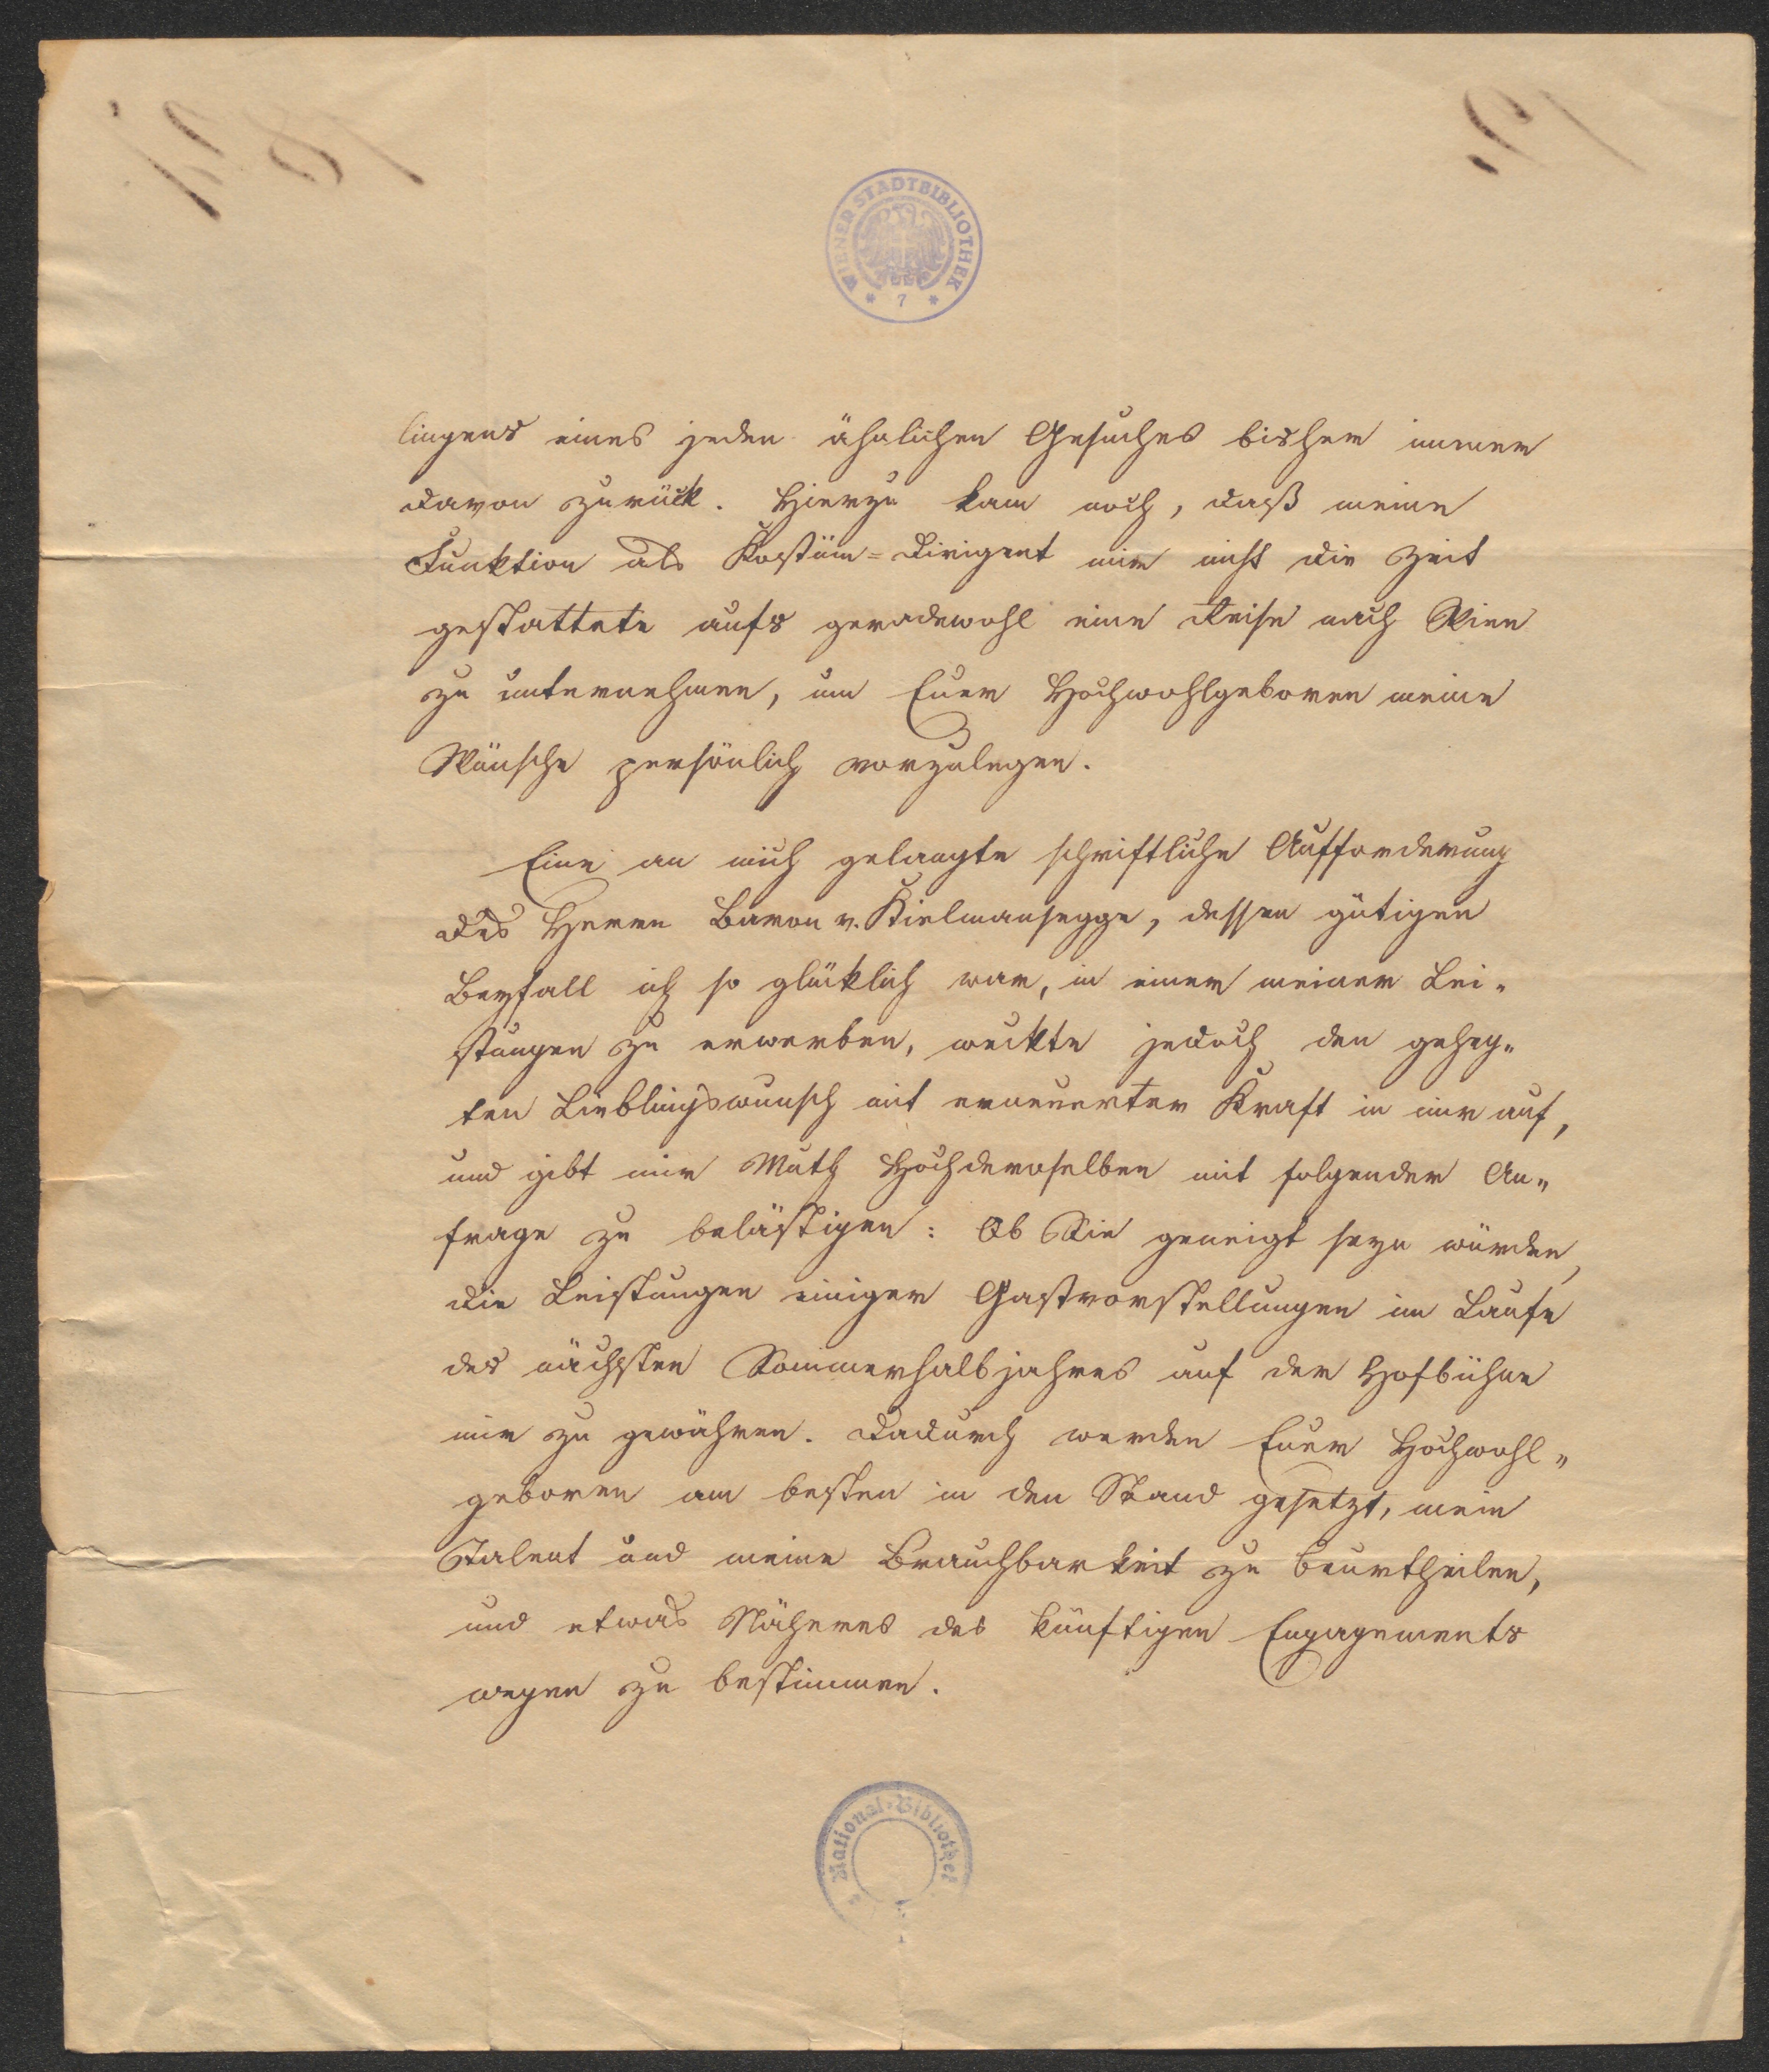 WIENER STADTBIBLIOTHEK
* 7 *
lingens eines jeden ähnlichen Gesuches bisher immer
davon zurück. Hierzu kam noch, daß meine
Funktion als Kostüm=Dirigent mir nicht die Zeit
gestattete aufs geradewohl eine Reise nach Wien
zu unternehmen, um Euer Hochwohlgeboren meine
Wünsche persönlich vorzulegen.
Eine an mich gelangte schriftliche Aufforderung
des Herrn Baron v. Kielmansegge, dessen gütigen
Beyfall ich so glücklich war, in einer meiner Lei„
stungen zu erwerben, weckte jedoch den geheg„
ten Lieblingswunsch mit erneuerter Kraft in mir auf,
und gibt mir Muth Hochdenselben mit folgender An„
frage zu belästigen: Ob Sie geneigt seyn würden,
die Leistungen einiger Gastvorstellungen im Laufe
des nächsten Sommerhalbjahres auf der Hofbühne
mir zu gewähren. Dadurch werden Euer Hochwohl„
geboren am besten in den Stand gesetzt, mein
Talent und meine Brauchbarkeit zu beurtheilen,
und etwas Näheres des künftigen Engagements
wegen zu bestimmen.
National-Bibliothek